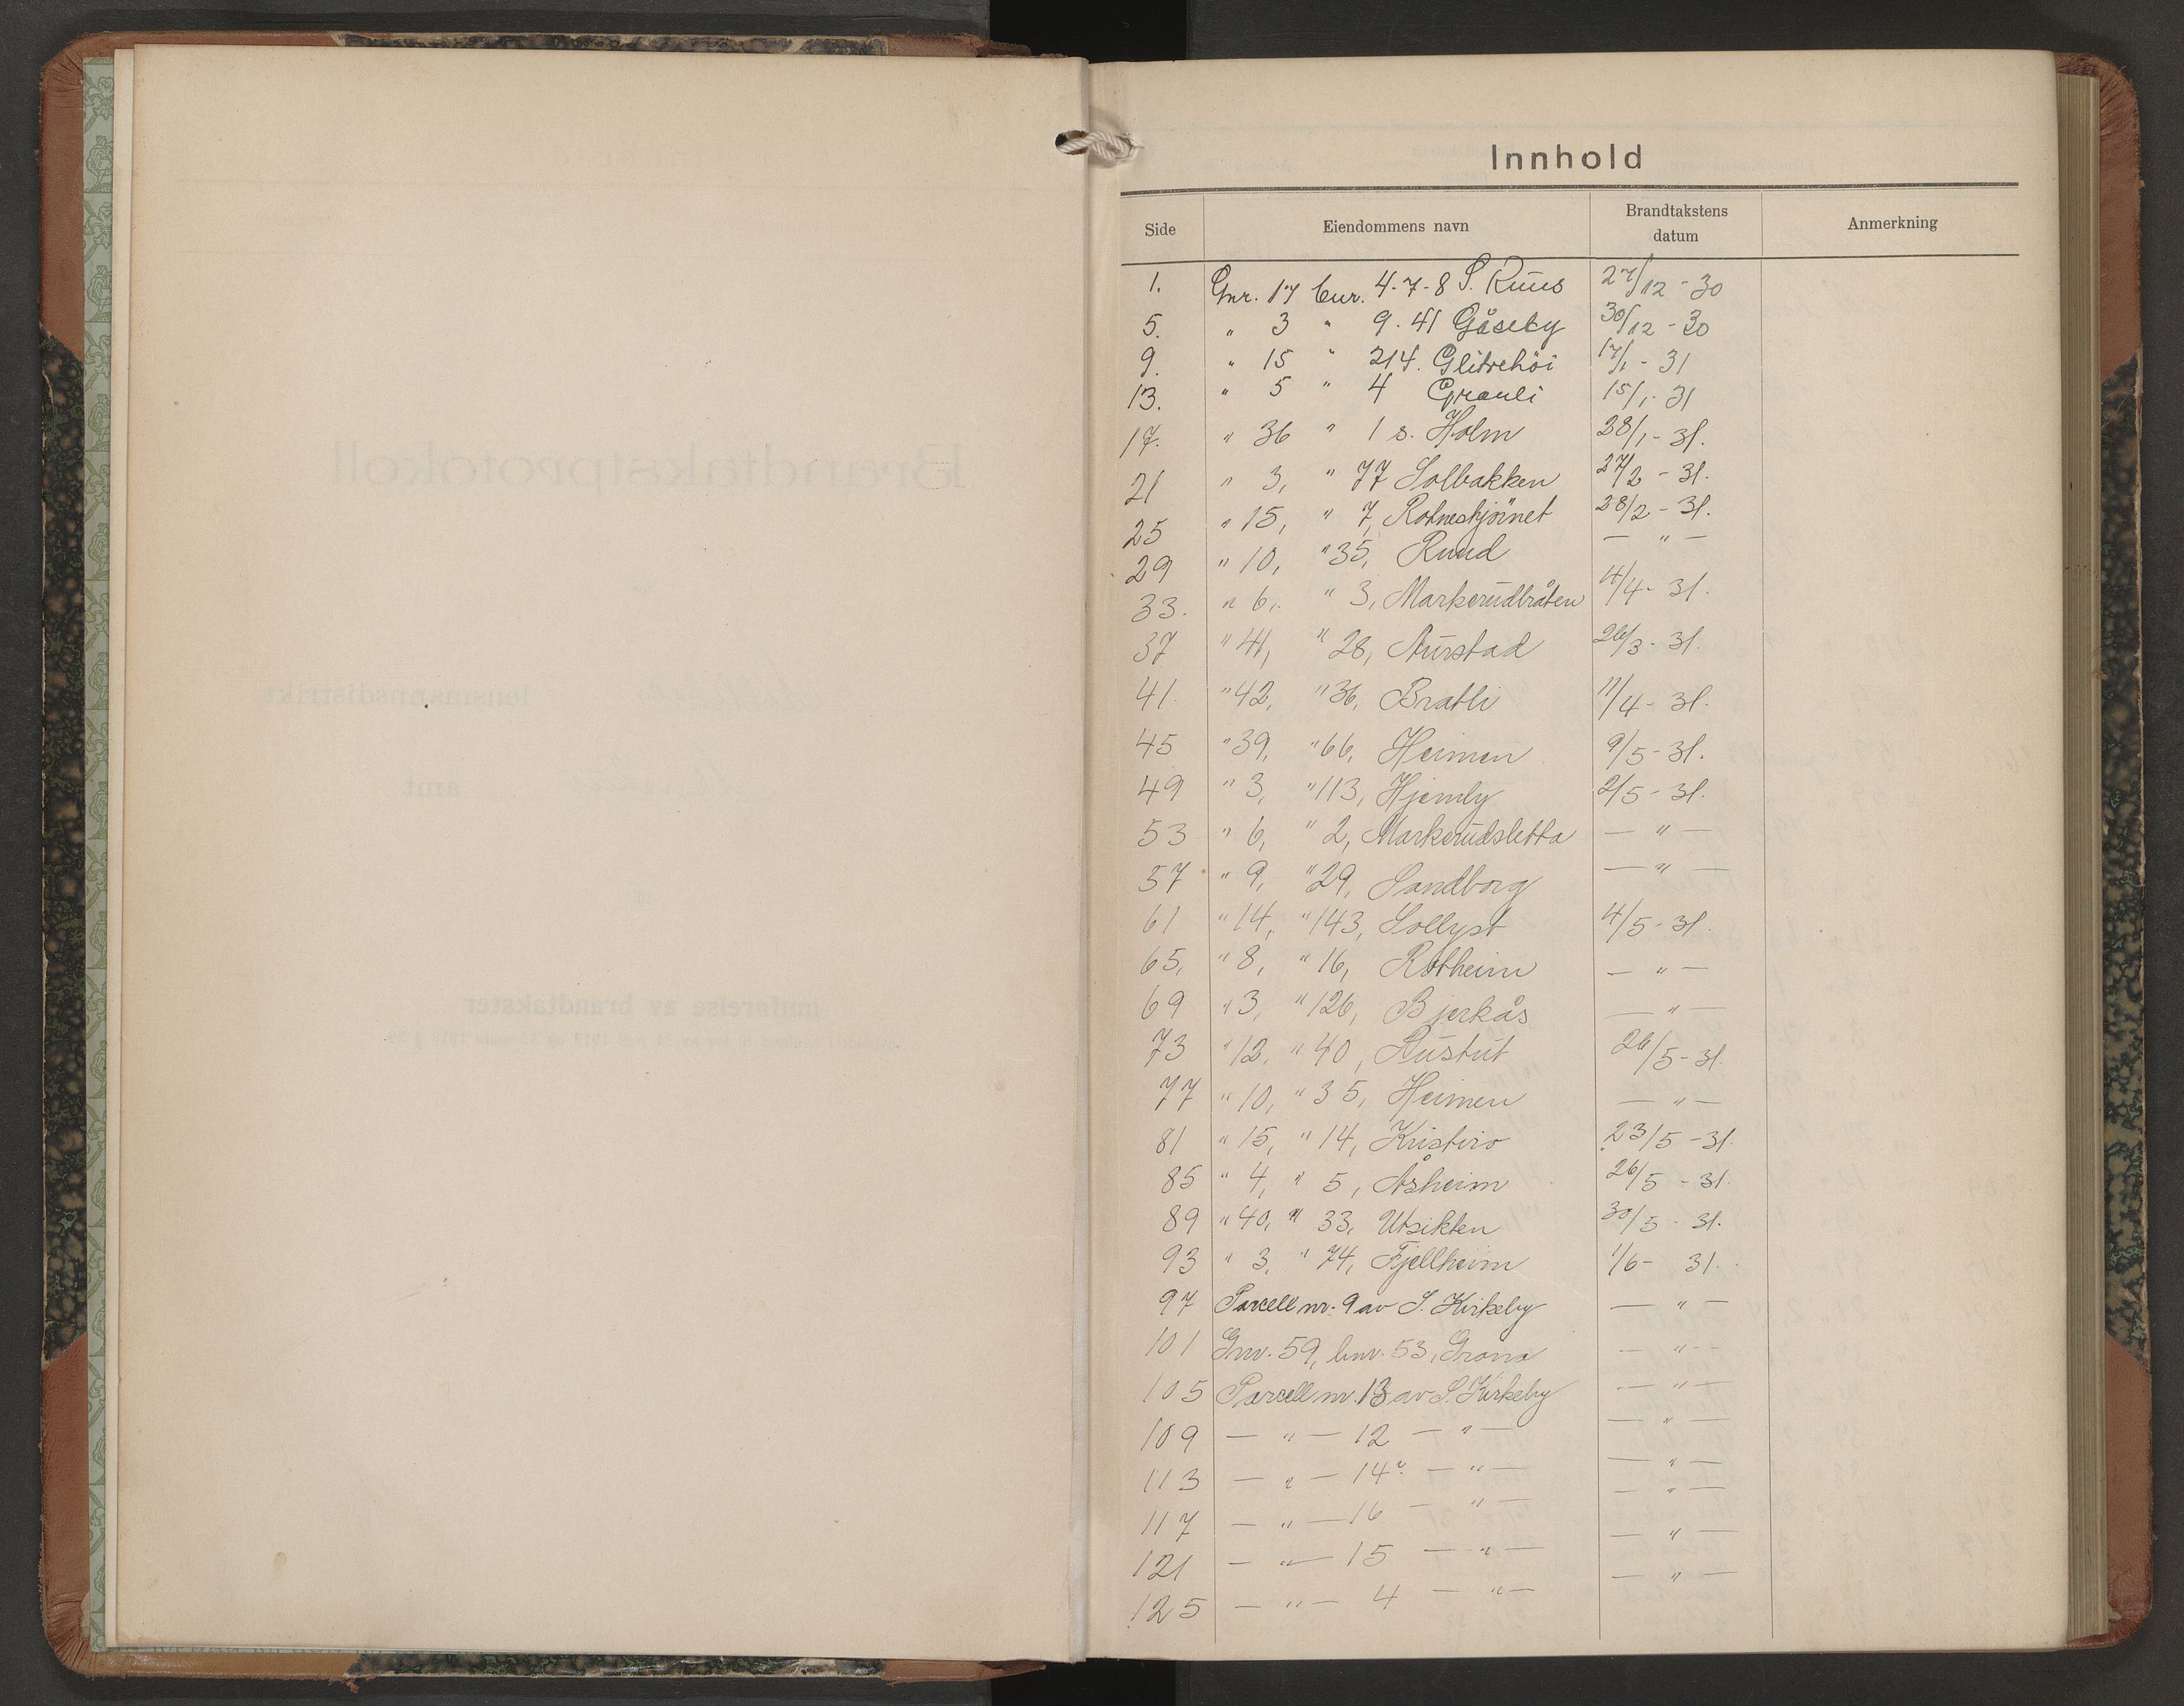 Innhold
Side Eiendommens navn Brandtakstens datum Anmerkning
1. Gnr. 17 bnr. 4-7-8 S. Ruus 27/12 - 30
5. " 3 " 9. 41 Gåseby 30/12 - 30
9. " 15 " 214. Glitrehöi 17/1 - 31
13. " 5 " 4 Granli 15/1. 31
17. " 36 " 1 s. Holm 28/1 - 31.
21 " 3, " 77 Solbakken 27/2 - 31.
25 " 15, " 7, Rotnestjörnet 28/2 - 31.
29 " 10, " 35, Ruud — " —
33. " 6, " 3, Markerudbråten 4/4 - 31.
37 " 41, " 28, Aurstad 26/3 - 31.
41. " 42, " 36, Bratli 11/4 - 31.
45 " 39, " 66, Heimen 9/5 - 31.
49 " 3, " 113, Hjemly 2/5 - 31.
53 " 6, " 2, Markerudsletta — " —
57 " 9, " 29, Sandborg — " —
61 " 14, " 143, Sollyst 4/5 - 31.
65, " 8, " 16, Rotheim — " —
69 " 3, " 126, Bjerkås — " —
73 " 12, " 40, Rustut 26/5 - 31.
77 " 10, " 35, Heimen — " —
81 " 15, " 14, Kristiro 23/5 - 31.
85 " 4, " 5, Åsheim 26/5 - 31.
89 " 40, " 33, Utsikten 30/5 - 31.
93 " 3, " 74, Fjellheim 1/6 - 31.
97 Parcell nr. 9 av S. Kirkeby — " —
101 Gnr. 59, bnr. 53, Grana — " —
105 Parcell nr. 13 av S. Kirkeby — " —
109 — " — 12 — " — — " —
113 — " — 14 — " — — " —
117 — " — 16 — " — — " —
121 — " — 15 — " — — " —
125 — " — 4 — " — — " —